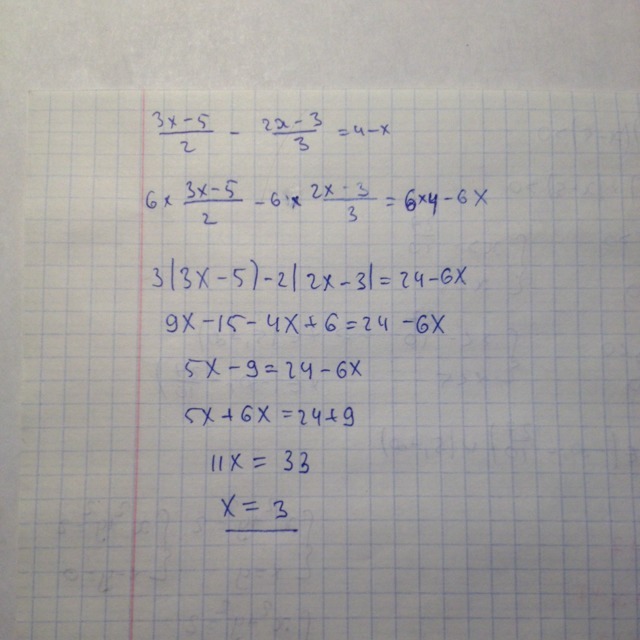 (3x-5)/2 - (2x-3)/3 = 4-x
6x (3x-5)/2 - 6x (2x-3)/3 = 6x4-6x
3(3x-5)-2(2x-3)=24-6x
9x-15-4x+6=24-6x
5x-9=24-6x
5x+6x=24+9
11x = 33
x = 3